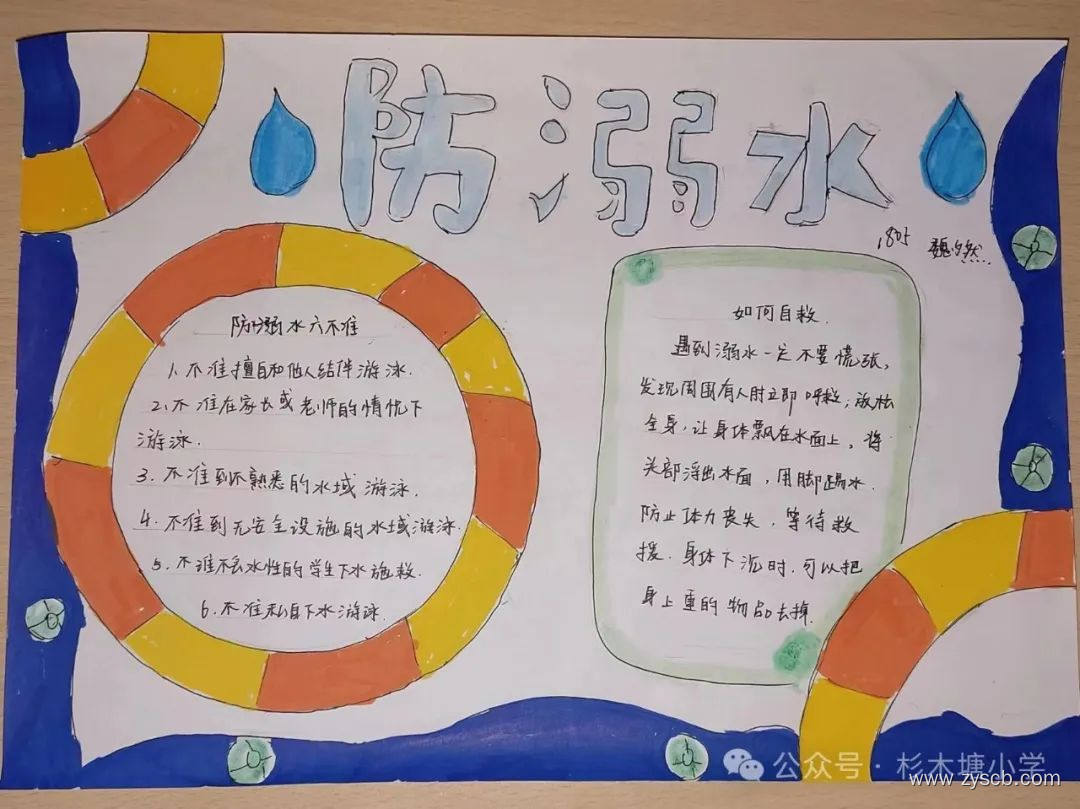 防溺水
1805 魏
防溺水六不准
1、不准擅自和他人结伴游泳.
2、不准在家长或老师的情忧下
游泳.
3、不准到不熟悉的水域游泳.
4、不准到无安全设施的水域游泳.
5、不准不会水性的学生下水施救.
6、不准私自下水游泳.
如何自救.
遇到溺水一定不要慌张,
发现周围有人时立即呼救,放松
全身,让身体飘在水面上,将
头部浮出水面,用脚踢水.
防止体力丧失,等待救
援.身体下沉时.可以把
身上重的物品去掉.
公众号·杉木塘小学
www.zyscb.com